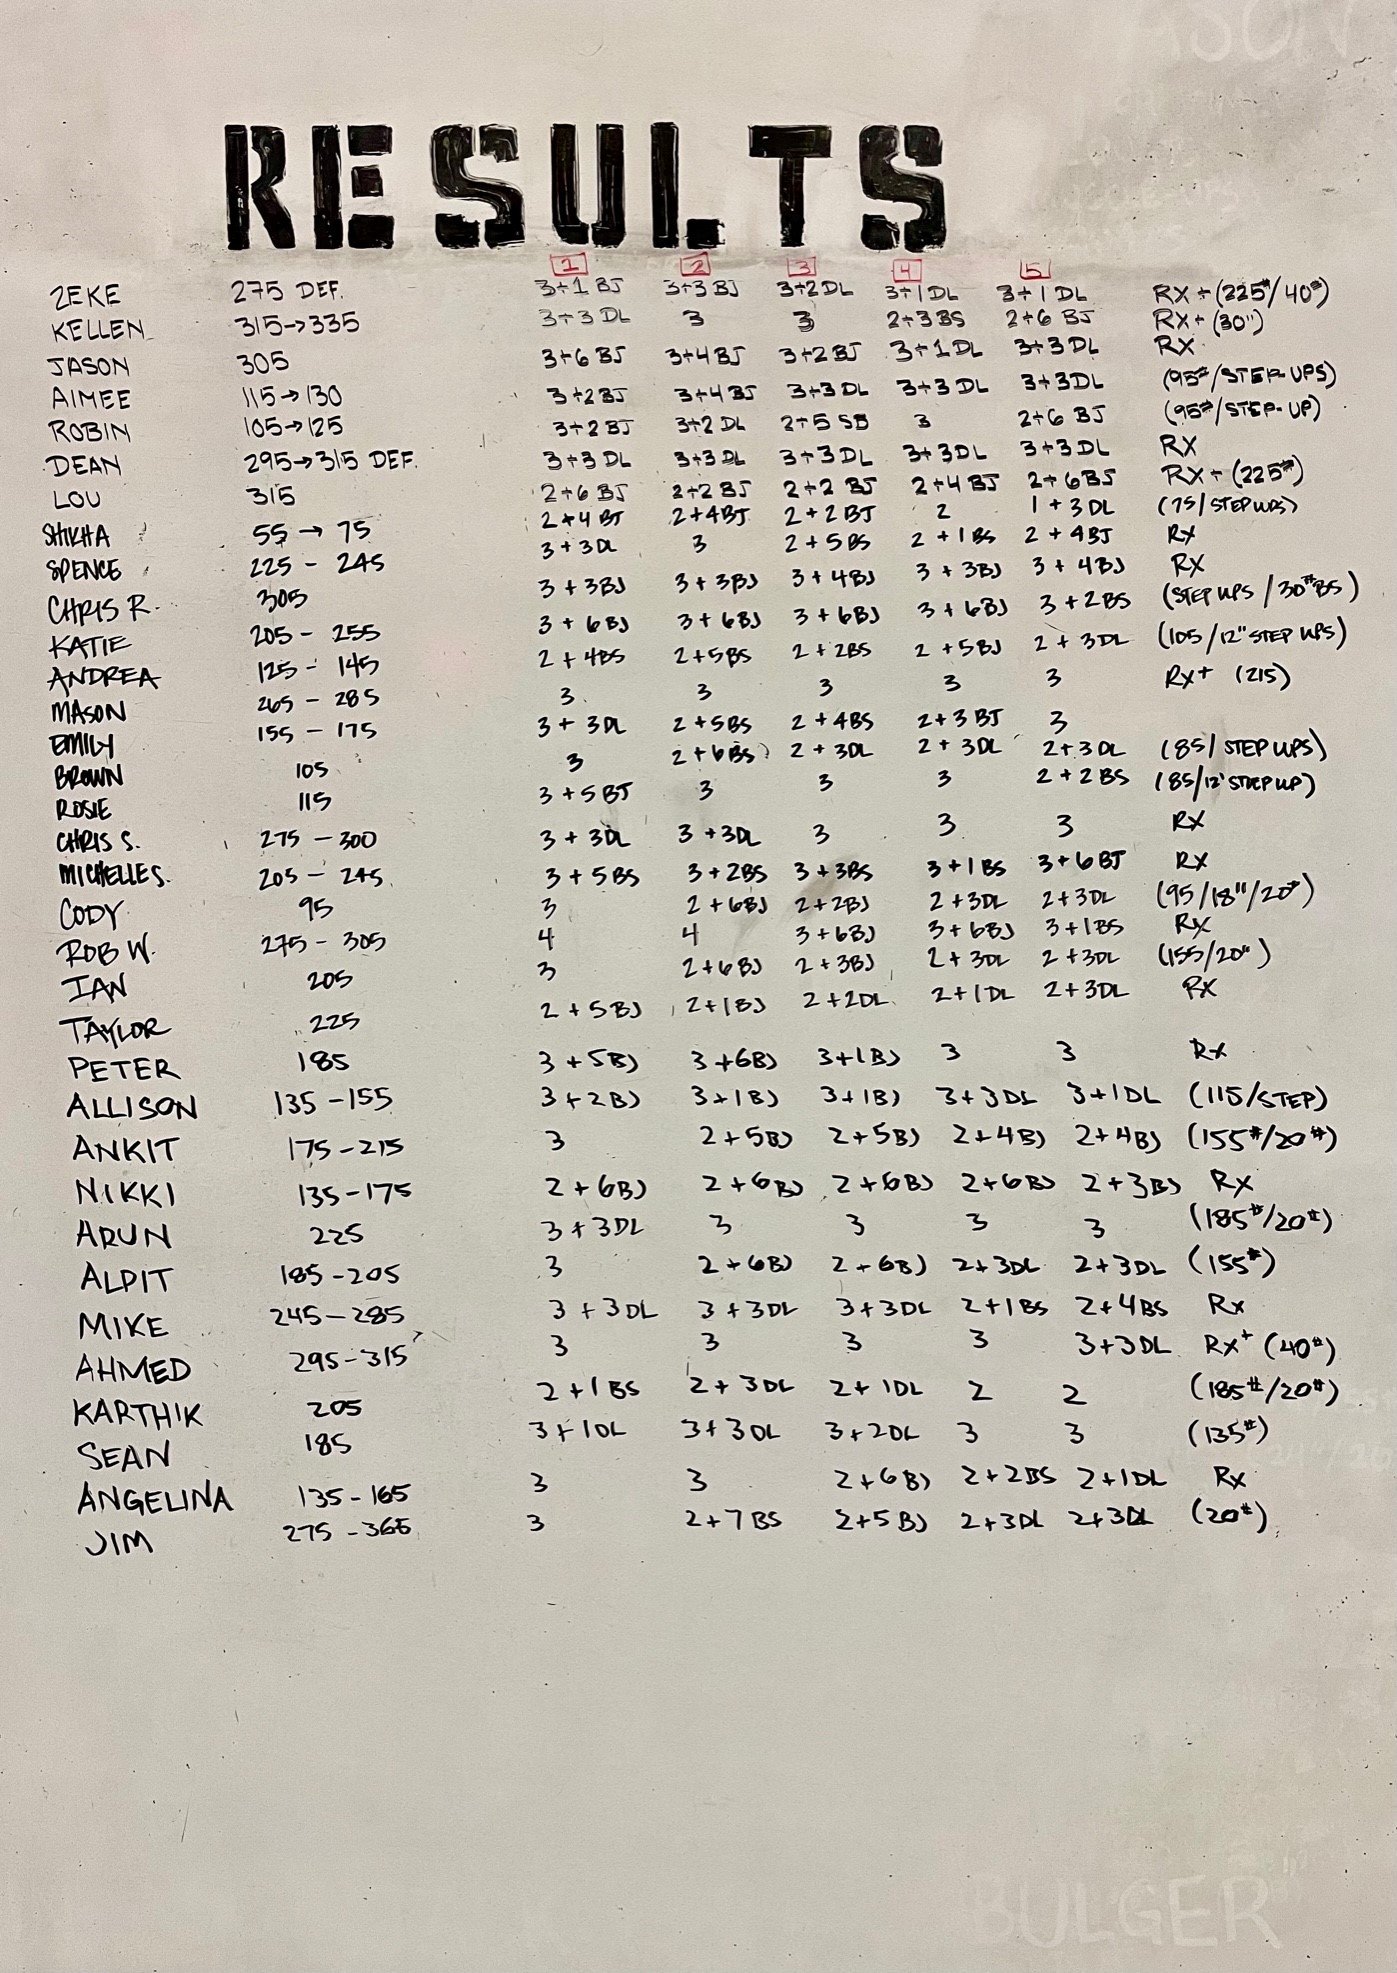 RESULTS
1 2 3 4 5
ZEKE 275 DEF. 3+1 BJ 3+3 BJ 3+2 DL 3+1 DL 3+1 DL RX+(225#/40#)
KELLEN 315→335 3+3 DL 3 3 2+3 BS 2+6 BJ RX+(30")
JASON 305 3+6 BJ 3+4 BJ 3+2 BJ 3+1 DL 3+3 DL RX
AIMEE 115→130 3+2 BJ 3+4 BJ 3+3 DL 3+3 DL 3+3 DL (95#/STEP-UPS)
ROBIN 105→125 3+2 BJ 3+2 DL 2+5 SB 3 2+6 BJ (95#/STEP-UP)
DEAN 295→315 DEF. 3+3 DL 3+3 DL 3+3 DL 3+3 DL 3+3 DL RX
LOU 315 2+6 BJ 2+2 BJ 2+2 BJ 2+4 BJ 2+6 BJ RX+(225#)
SHIKHA 55→75 2+4 BJ 2+4BJ 2+2 BJ 2 1+3 DL (75/STEPUPS)
SPENCE 225 - 245 3+3DL 3 2+5BS 2+1BS 2+4BJ RX
CHRIS R. 305 3+3BJ 3+3BJ 3+4BJ 3+3BJ 3+4BJ RX
KATIE 205 - 255 3+6BJ 3+6BJ 3+6BJ 3+6BJ 3+2BS (STEP UPS/30#BS)
ANDREA 125 - 145 2+4BS 2+5BS 2+2BS 2+5BJ 2+3DL (105/12" STEP UPS)
MASON 265 - 285 3 3 3 3 3 RX+ (215)
EMILY 155 - 175 3+3DL 2+5BS 2+4BS 2+3BJ 3
BROWN 105 3 2+6BS 2+3DL 2+3DL 2+3DL (85/STEP UPS)
ROSIE 115 3+5BJ 3 3 3 2+2BS (85/12' STEP UP)
CHRIS S. 275 - 300 3+3DL 3+3DL 3 3 3 RX
MICHELLE S. 205 - 245 3+5BS 3+2BS 3+3BS 3+1BS 3+6BJ RX
CODY 95 3 2+6BJ 2+2BJ 2+3DL 2+3DL (95/18"/20#)
ROB W. 275 - 305 4 4 3+6BJ 3+6BJ 3+1BS RX
IAN 205 3 2+6BJ 2+3BJ 2+3DL 2+3DL (155/20#)
TAYLOR 225 2+5BJ 2+1BJ 2+2DL 2+1DL 2+3DL RX
PETER 185 3+5BJ 3+6BJ 3+1BJ 3 3 Rx
ALLISON 135-155 3+2BJ 3+1BJ 3+1BJ 3+3DL 3+1DL (115/STEP)
ANKIT 175-215 3 2+5BJ 2+5BJ 2+4BJ 2+4BJ (155#/20#)
NIKKI 135-175 2+6BJ 2+6BJ 2+6BJ 2+6BJ 2+3BJ Rx
ARUN 225 3+3DL 3 3 3 3 (185#/20#)
ALPIT 185-205 3 2+6BJ 2+6BJ 2+3DL 2+3DL (155#)
MIKE 245-285 3+3DL 3+3DL 3+3DL 2+1BS 2+4BS Rx
AHMED 295-315 3 3 3 3 3+3DL Rx+ (40#)
KARTHIK 205 2+1BS 2+3DL 2+1DL 2 2 (185#/20#)
SEAN 185 3+1DL 3+3DL 3+2DL 3 3 (135#)
ANGELINA 135-165 3 3 2+6BJ 2+2BS 2+1DL Rx
JIM 275-365 3 2+7BS 2+5BJ 2+3DL 2+3DL (20#)
BULGER